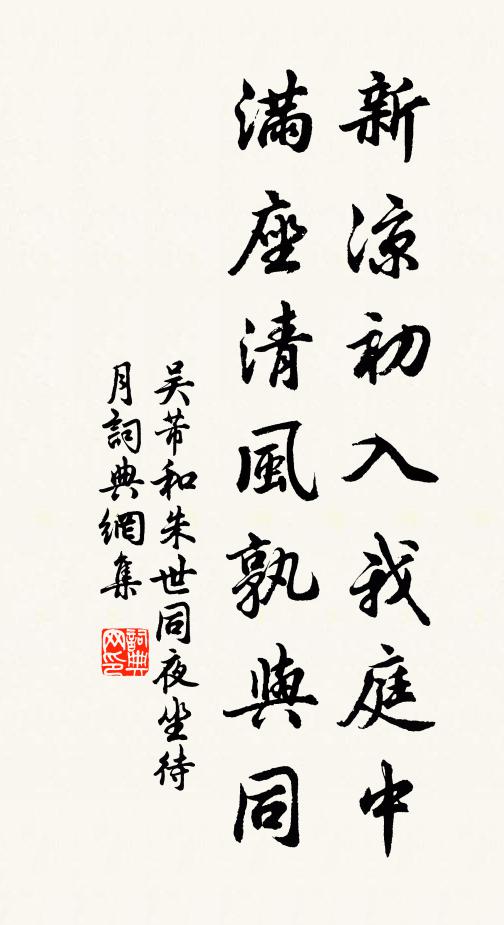 新涼初入我庭中
滿座清風孰與同
吴芾和朱世同夜坐待
月詞典網集
詞典
网印